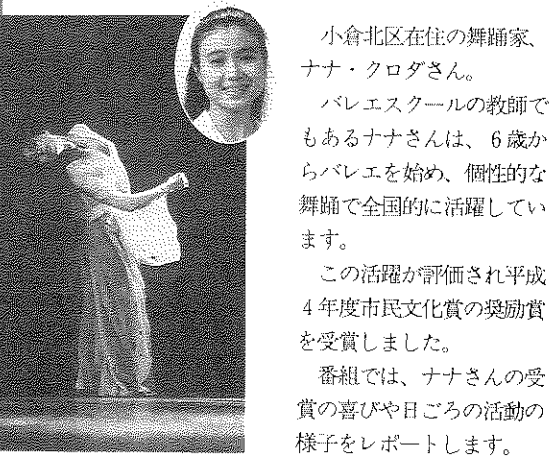 小倉北区在住の舞踊家、
ナナ・クロダさん。
　バレエスクールの教師で
もあるナナさんは、6歳か
らバレエを始め、個性的な
舞踊で全国的に活躍してい
ます。
　この活躍が評価され平成
4年度市民文化賞の奨励賞
を受賞しました。
　番組では、ナナさんの受
賞の喜びや日ごろの活動の
様子をレポートします。